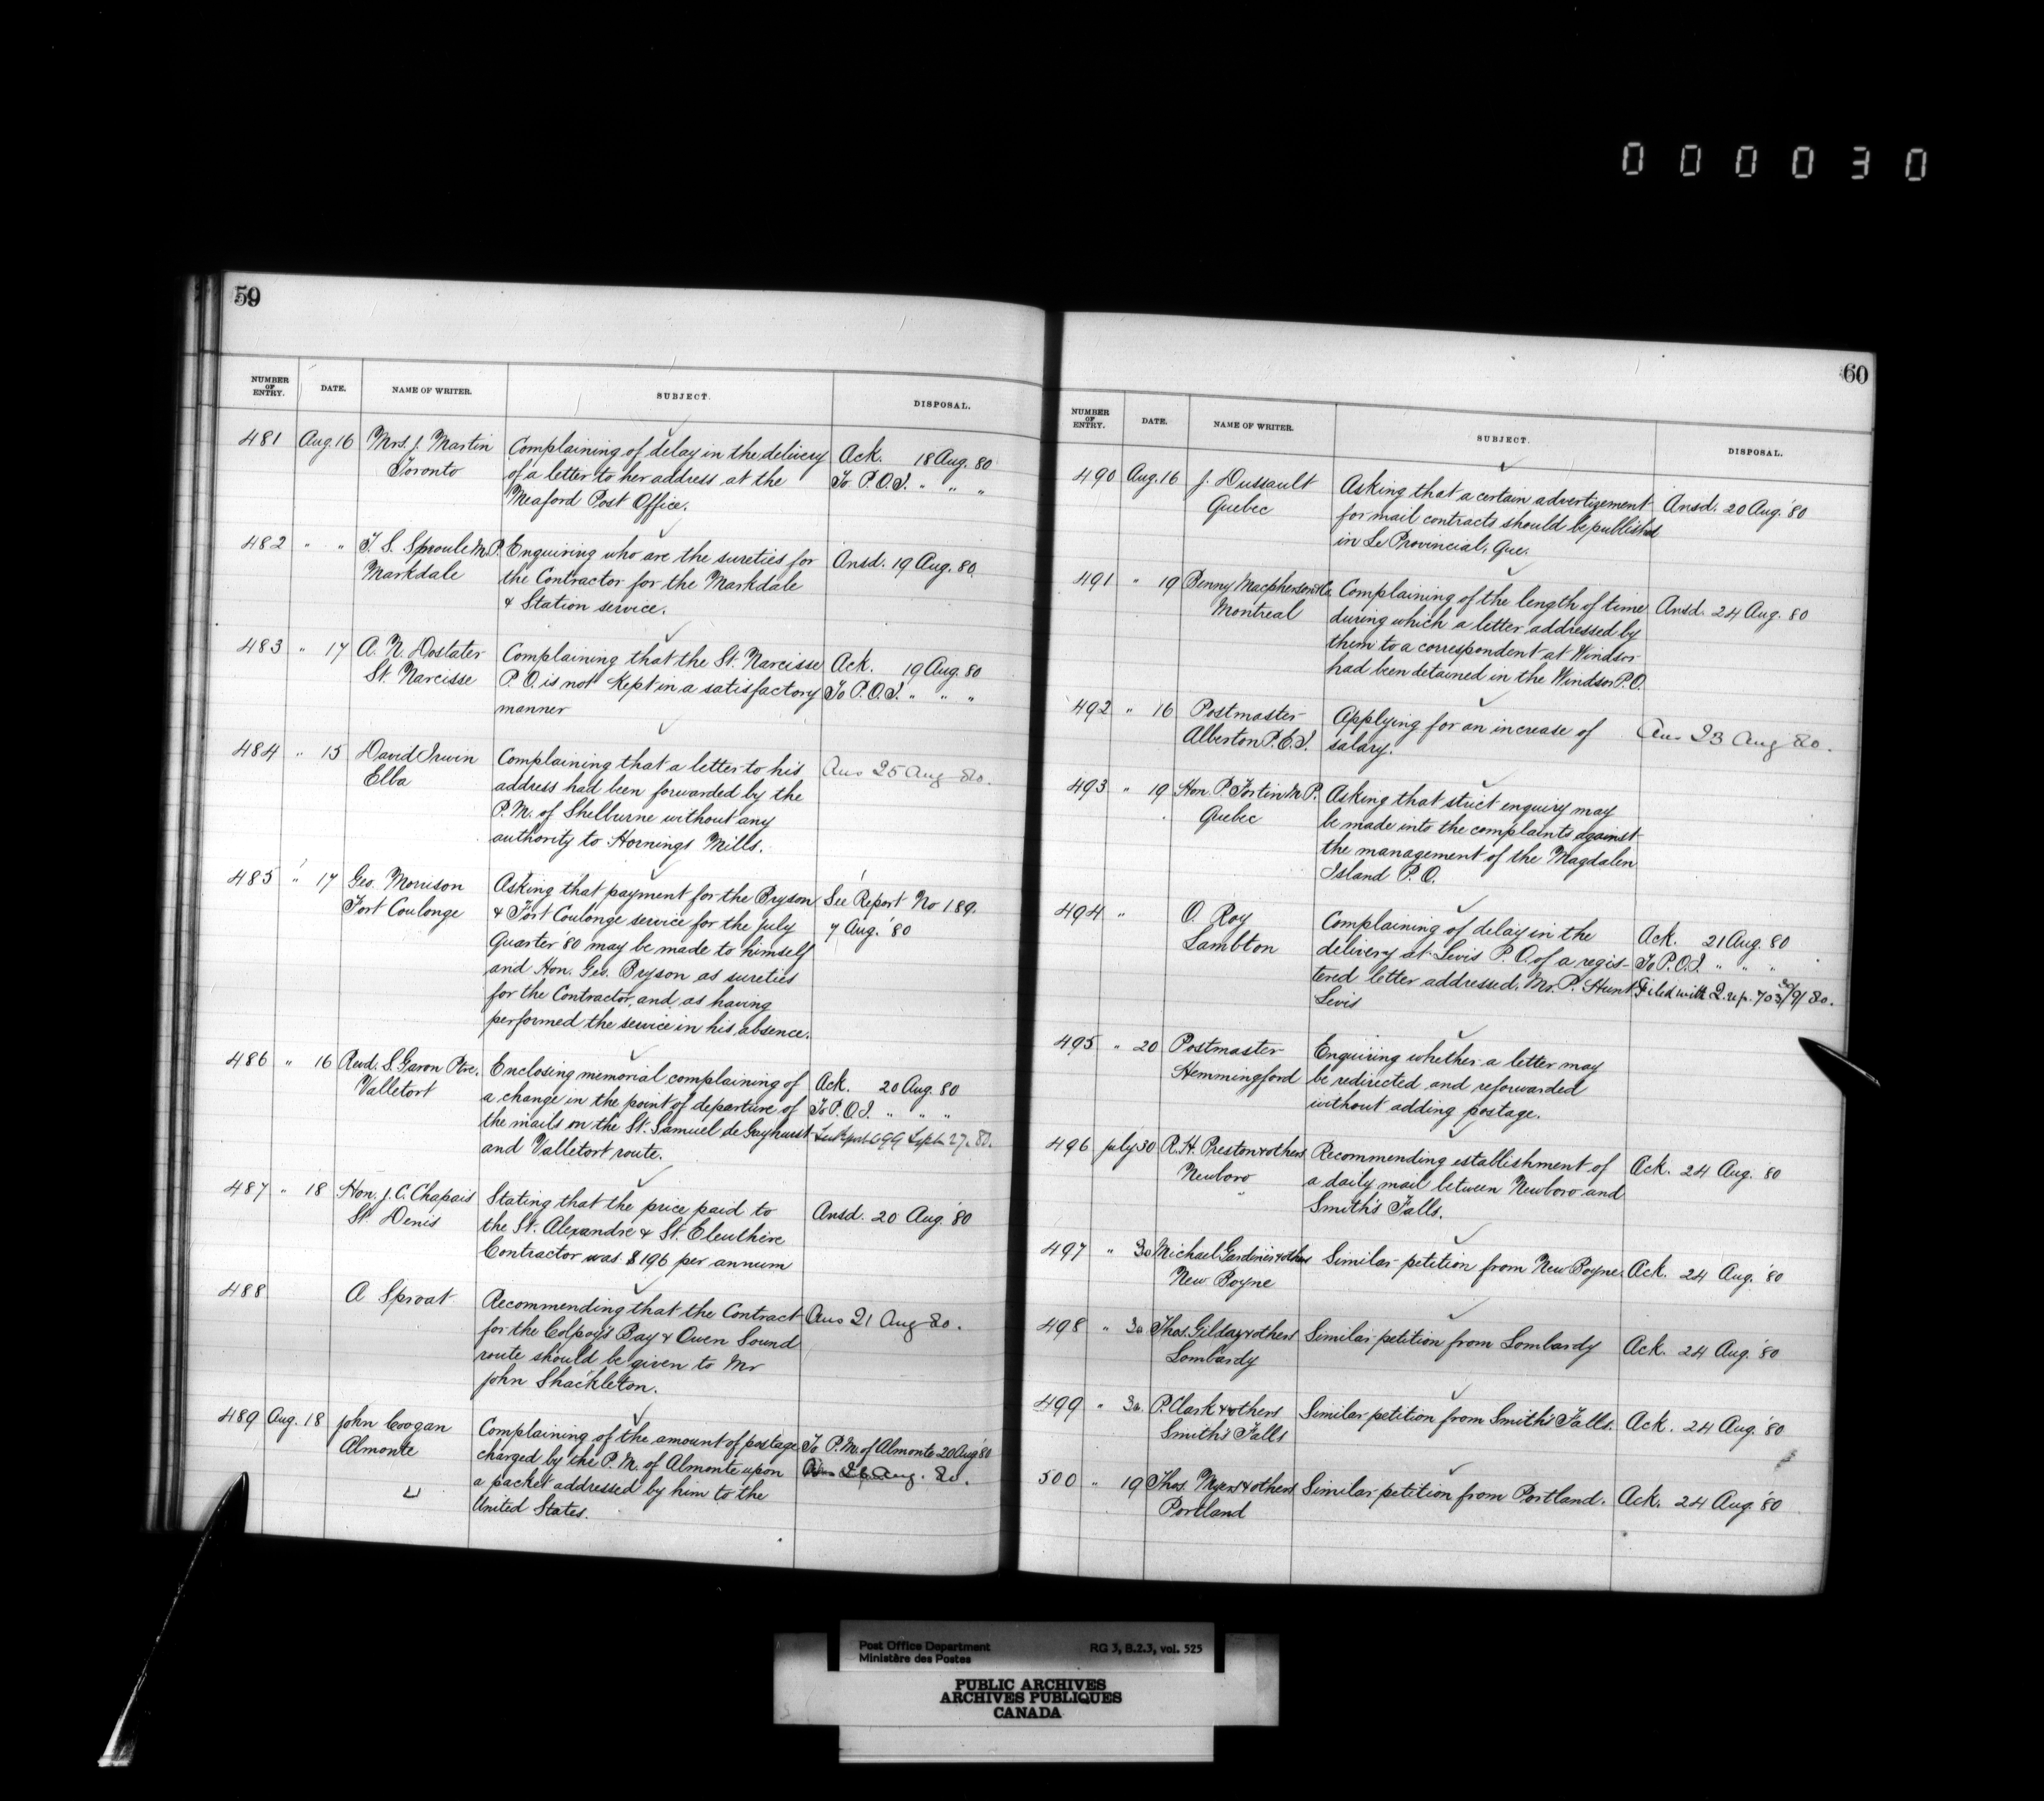 000030
59
NUMBER OF ENTRY. DATE. NAME OF WRITER. SUBJECT. DISPOSAL.
481 Aug. 16 Mrs. J. Martin Complaining of delay in the delivery Ack. 18 Aug. 80
Toronto of a letter to her address at the To P.O.I. " " "
Meaford Post Office.
482 " " T. S. Sproule M.P. Enquiring who are the sureties for Ansd. 19 Aug. 80.
Markdale the Contractor for the Markdale
& Station service.
483 " 17 A. N. Doslater Complaining that the St. Narcisse Ack. 19 Aug. 80
St. Narcisse P.O. is not Kept in a satisfactory To P.O.I. " " "
manner
484 " 15 David Irwin Complaining that a letter to his Ans 25 Aug 80.
Elba address had been forwarded by the
P.M. of Shelburne without any
authority to Hornings Mills.
485 " 17 Geo. Morrison Asking that payment for the Bryson See Report No 189.
Fort Coulonge & Fort Coulonge service for the July 7 Aug. '80
Quarter '80 may be made to himself
and Hon. Geo. Bryson as sureties
for the Contractor, and as having
performed the service in his absence.
486 " 16 Revd. S. Garon Ptre. Enclosing memorial complaining of Ack. 20 Aug. 80
Valletort a change in the point of departure of To P.O.I. " " "
the mails on the St. Samuel de Gayhurst See Report 699 Sept. 27. 80.
and Valletort route.
487 " 18 Hon. J. C. Chapais Stating that the price paid to Ansd. 20 Aug. '80
St. Denis the St. Alexandre & St. Eleuthère
Contractor was $196 per annum
488 A Sproat Recommending that the Contract Ans 21 Aug 80.
for the Colpoy's Bay & Owen Sound
route should be given to Mr
John Shackleton.
489 Aug. 18 John Coogan Complaining of the amount of postage To P.M. of Almonte 20 Aug '80
Almonte charged by the P.M. of Almonte upon Aug. 80.
a packet addressed by him to the
United States.
60
NUMBER OF ENTRY. DATE. NAME OF WRITER. SUBJECT. DISPOSAL.
490 Aug. 16 J. Dussault Asking that a certain advertizement Ansd. 20 Aug. '80
Quebec for mail contracts should be published
in Le Provincial, Que.
491 " 19 Penny Macpherson & Co. Complaining of the length of time Ansd. 24 Aug. 80
Montreal during which a letter addressed by
them to a correspondent at Windsor
had been detained in the Windsor P.O.
492 " 16 Postmaster Applying for an increase of Ans 23 Aug 80.
Alberton P.E.I. salary.
493 " 19 Hon. P. Fortin M.P. Asking that strict enquiry may
Quebec be made into the complaints against
the management of the Magdalen
Island P.O.
494 " O. Roy Complaining of delay in the Ack. 21 Aug. 80
Lambton delivery at Levis P.O. of a regis- To P.O.I. " " "
tered letter addressed, Mr. P. Hunt Filed with Q. rep. 703 30/9/80.
Levis
495 " 20 Postmaster Enquiring whether a letter may
Hemmingford be redirected and reforwarded
without adding postage.
496 July 30 R. H. Preston & others Recommending establishment of Ack. 24 Aug. 80
Newboro a daily mail between Newboro and
Smith's Falls.
497 " 30 Michael Gardiner & others Similar petition from New Boyne. Ack. 24 Aug. '80
New Boyne
498 " 30 Thos. Gilday & others Similar petition from Lombardy Ack. 24 Aug. '80
Lombardy
499 " 30 P. Clark & others Similar petition from Smith's Falls. Ack. 24 Aug. '80
Smith's Falls
500 " 19 Thos. Myers & others Similar petition from Portland. Ack. 24 Aug. '80
Portland
Post Office Department RG 3, B.2.3, vol. 525
Ministère des Postes
PUBLIC ARCHIVES
ARCHIVES PUBLIQUES
CANADA